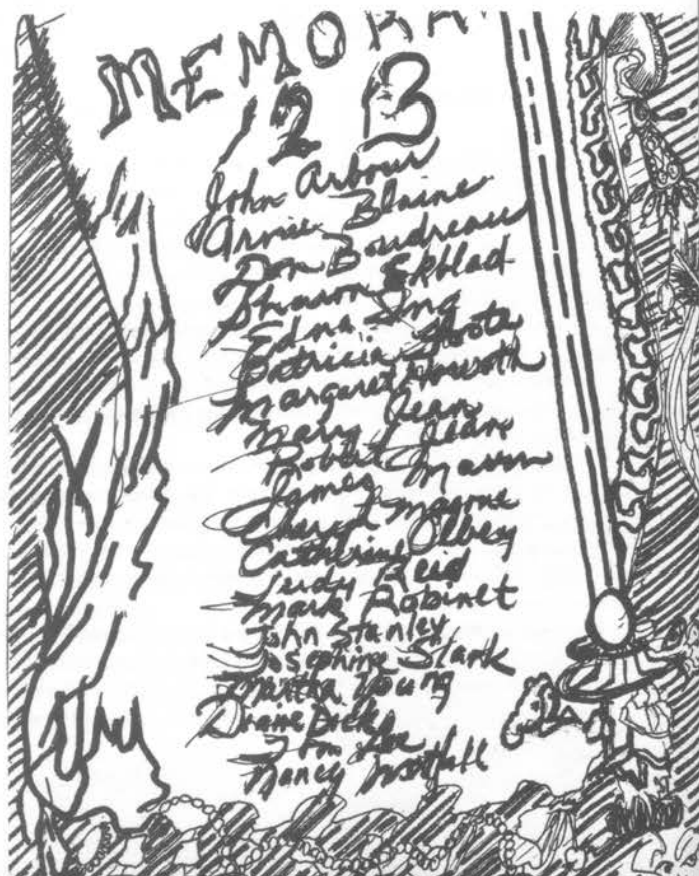 MEMORA
12 B
John Arbour
Arnie Blaine
Don Boudreau
Sharon Ekblad
Edna Ing
Patricia
Margaret Howorth
Mary Jean
Robert
James Mason
Sheryl
Catherine
Judy Reid
Mark Robinet
John Stanley
Josephine Slark
Martha Young
Duane Dick
Tom
Nancy